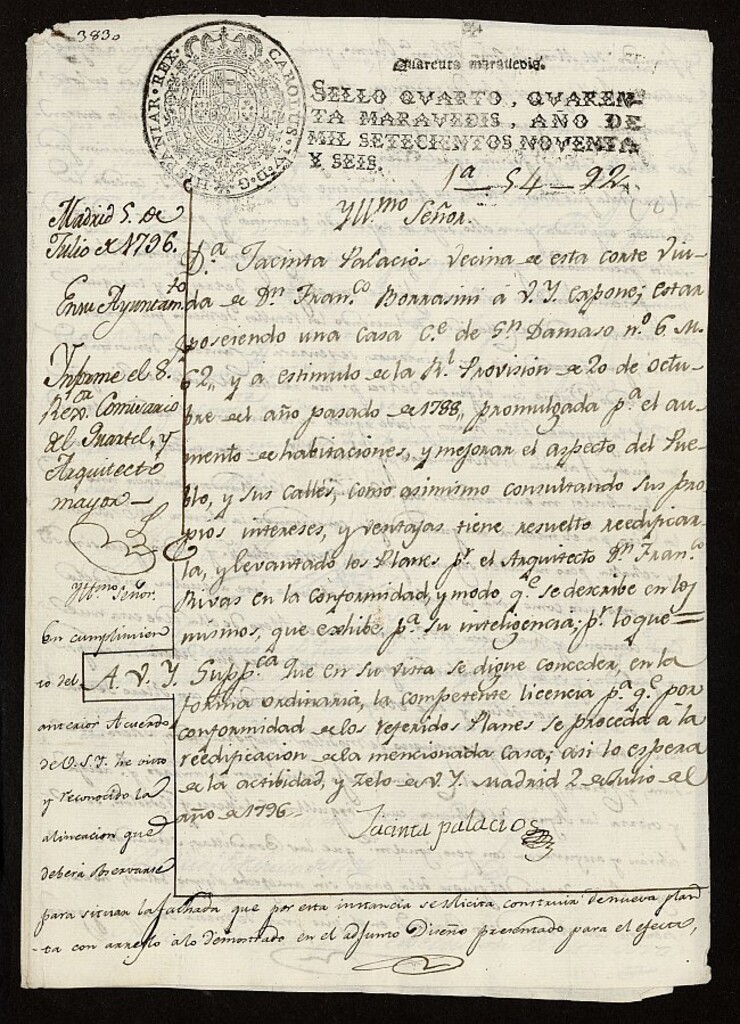 383.
CAROLUS IV D.G. HISPANIAR. REX
Quarenta maravedis.
SELLO QVARTO, QVAREN-
TA MARAVEDIS, AÑO DE
MIL SETECIENTOS NOVENTA
Y SEIS.
1a—54—22
Yll.mo Señor.
D.a Jacinta Palacios, Vecina de esta corte Viu-
da de Dn Fran.co Borrasini á V.Y. expone; estar
poseiendo una Casa C.e de Sn Damaso n.o 6. M.
62,, y a estimulo de la Rl Provision de 20 de octu-
bre del año pasado de 1788,, promulgada p.a el au-
mento de habitaciones, y mejorar el aspecto del Pue-
blo, y sus Calles, como asimismo consultando sus pro-
pios intereses, y ventajas tiene resuelto reedificar-
la, y levantado los Planes pr. el Arquitecto Dn Fran.co
Rivas en la Conformidad, y modo q.e se describe en los
mismos, que exhibe, p.a su inteligencia; pr. lo que=
A. V. Y. Supp.ca Que en su vista se digne conceder, en la
forma ordinaria, la competente licencia p.a q.e por
conformidad de los referidos Planes se proceda á la
reedificacion de la mencionada Casa; asi lo espera
de la actibidad, y Zelo de V. Y. Madrid 2 de Julio del
año de 1796—
Jacinta palacios
Madrid 5. de
Julio de 1796.
En su Ayuntam.to
Informe el S.r
Rex.or Comisario
del Quartel, y
Arquitecto
mayor—
Yll.mo Señor.
En cumplimien
to del
anterior Acuerdo
de V.S.Y. he visto
y reconocido la
alineacion que
deberá observarse
para situar la fachada que por esta instancia se solicita construir de nueva plan
ta con arreglo á lo demostrado en el adjunto Diseño presentado para el efecto,